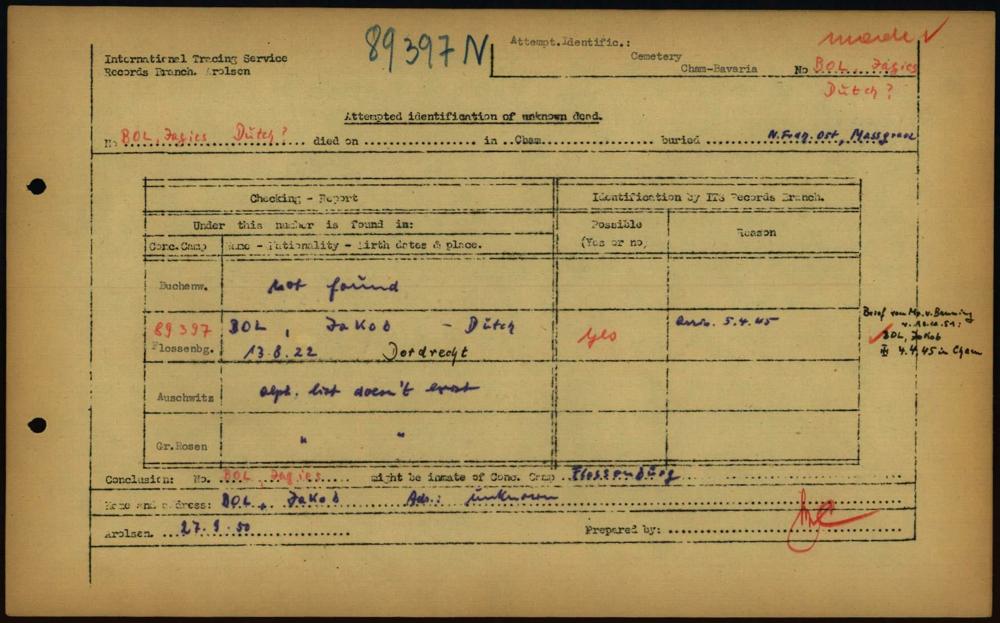 89397N
made ✓
International Tracing Service
Records Branch. Arolsen
Attempt. Identific.:
Cemetery
Cham-Bavaria
No BOL, Jagies
Dutch?
Attempted identification of unknown dead.
No BOL, Jagies Dutch? died on in Cham buried N.Frag.Ost, Massgrave
Checking - Report
Identification by ITS Records Branch.
Under this number is found in:
Possible (Yes or no)
Reason
Conc.Camp
Name - Nationality - Birth dates & place.
Buchenw.
not found
89397
Flossenbg.
BOL, Jakob - Dutch
13.8.22 Dordrecht
yes
arr. 5.4.45
Brief von Mp.v.Banning
v. 12.10.51:
✓ BOL, Jakob
4.4.45 in Cham
Auschwitz
alph. list doesn't exist
Gr.Rosen
" "
Conclusion: No. BOL, Jagies might be inmate of Conc. Camp Flossenbürg
Name and address: BOL, Jakob Adr.: unknown
Arolsen. 27.9.50
Prepared by: